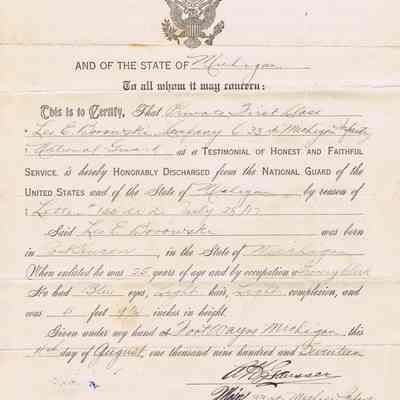 AND OF THE STATE OF Michigan
To all whom it may concern:
This is to Certify, That Private First Class
Leo E. Borowski Company C 33rd Michigan Infantry
National Guard as a TESTIMONIAL OF HONEST AND FAITHFUL
SERVICE, is hereby HONORABLY DISCHARGED from the NATIONAL GUARD of the
UNITED STATES and of the STATE of Michigan, by reason of
Letter July 25/17
Said Leo E. Borowski was born
in , in the State of Michigan
When enlisted he was 25 years of age and by occupation a Clerk
He had Blue eyes, Light hair, Light complexion, and
was 5 feet 9¾ inches in height.
Given under my hand at Fort Wayne Michigan, this
day of August, one thousand nine hundred and Seventeen
Maj. 33rd Michigan